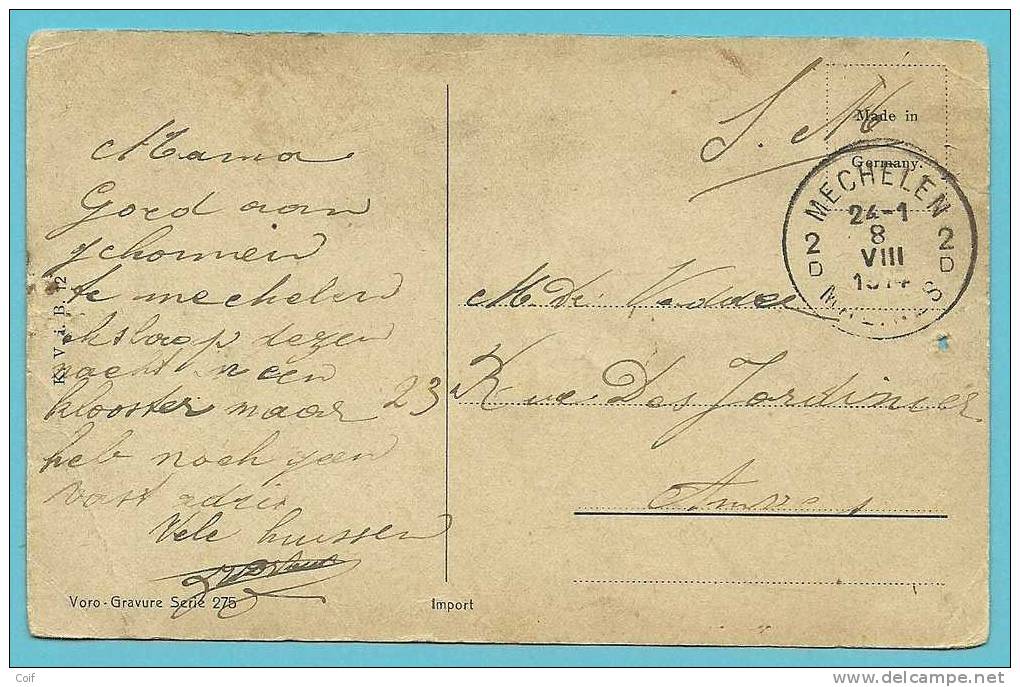 Mama
Goed aan
gekomen
te mechelen
ik slaap dezen
nacht in een
klooster maar
heb noch geen
vast adres
Vele kussen
K. V. i. B. 12
Voro-Gravure Serie 275
Import
S. M
Made in
Germany.
MECHELEN
24-1
8
VIII
1914
2 D
2 D
MALINES
23 Rue Des Jardinier
Anvers
Coif
www.delcampe.net